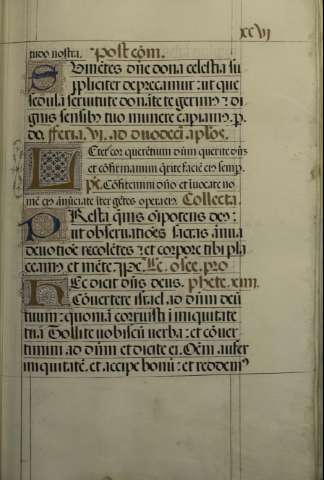 xcvi
tudo nostra. Post cōm.
Sumētes dn̄e dona celestia su
ppliciter deprecamur: ut que
sedula seruitute donāte te gerimꝰ: di
gnis sensibꝫ tuo munere capiamꝰ. p.
do. fferia. vi. ad duodeci apl̄os.
Letet̄ cor querētium dn̄m querite dn̄ꝫ
et cōfirmamini q̄rite faciē eiꝰ semp.
pͥ. Cōfitemini dn̄o et īuocate no
mē eiꝰ: ānūciate īter gētes opera eiꝰ. Collecta.
Presta qͣmꝰ oīpotens deꝰ:
ut obseruatiōes sacras ānua
deuotiōe recolētes: et corpore tibi pla
ceamꝰ et mēte. ꝑ. Lc̄. osee. pro
Hec dicit dn̄s deus. phete. xiiii.
Cōuertere israel ad dn̄m deū
tuum: quoniā corruisti ī iniquitate
tua Tollite uobiscū uerba: et cōuer
timini ad dn̄m et dicite ei. Oēm aufer
iniquitatē. et accipe bonū: et reddemꝰ